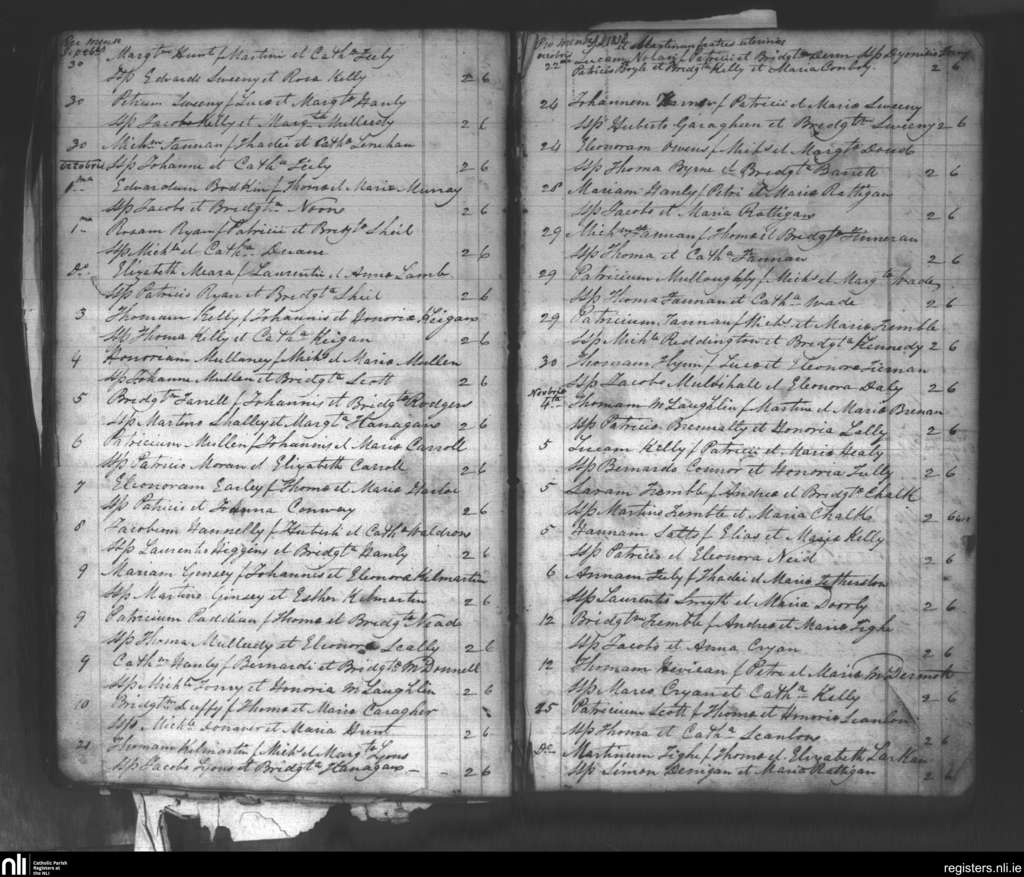 30 Margtm Hunt f Martini et Catha Feely
Ssp Edwardo Sweeny et Rosa Kelly 2 6
30 Petrum Sweeny f Luca et Margta Hanly
Ssp Jacobo Kelly et Margta Mulledy 2 6
30 Michm Fannan f Thadei et Catha Lenehan
Octobris Ssp Johanne et Catha Feely 2 6
1ma Edwardum Bodkin f Thoma et Maria Murray
Ssp Jacobo et Bridgta Noon 2 6
1ma Rosam Ryan f Patricii et Bridgta Sheil
Ssp Michle et Catha Duane 2 6
Do Elizabeth Meara f Laurentii et Anna Lamb
Ssp Patricio Ryan et Bridgta Sheil 2 6
3 Thomam Kelly f Johannis et Honoria Keigan
Ssp Thoma Kelly et Catha Keigan 2 6
4 Honoriam Mullaney f Michs et Maria Mullen
Ssp Johanne Mullen et Bridgta Scott 2 6
5 Bridgtm Farrell f Johannis et Bridgta Rodgers
Ssp Martino Shalley et Margta Flanagan 2 6
6 Patricium Mullen f Johannis et Maria Carroll
Ssp Patricio Moran et Elizabeth Carroll 2 6
7 Eleonoram Earley f Thoma et Maria
Ssp Patricio et Conway 2 6
8 Jacobum Hannelly f Huberti et Catha Waldron
Ssp Laurentio Higgins et Bridgta Hanly 2 6
9 Mariam Ginsey f Johannis et Eleonora Kilmartin
Ssp Martino Ginsey et Esther Kilmartin 2 6
9 Patricium Paddian f Thoma et Bridgta Neade
Ssp Thoma Mulledy et Eleonora Scally 2 6
9 Cathm Hanly f Bernardi et Bridgta McDonnell
Ssp Michle et Honoria McLaughlin 2 6
10 Bridgtm Duffy f Thoma et Maria Caragher
Ssp Michle Donavor et Maria Hunt 2 6
21 Thomam Kilmartin f Michs et Margta Lyons
Ssp Jacobo Lyons et Bridgta Flanagan 2 6
et Martinum fratres uterinos
22 Lucam Nolan f Patricii et Bridgta
Patricio Boyle et Bridgta Kelly et Maria Conboy 2 6
24 Johannem f Patricii et Maria Sweeny
Ssp Huberto Garaghan et Bridgta Sweeny 2 6
24 Eleonoram Owens f Michs et Margta Doud
Ssp Thoma Byrne et Bridgta Barrett 2 6
28 Mariam Hanly f Petri et Maria Rattigan
Ssp Jacobo et Maria Rattigan 2 6
29 Michm Fannan f Thoma et Bridgta Finneran
Ssp Thoma et Catha Fannan 2 6
29 Patricium Mulloughby f Michs et Margta Wade
Ssp Thoma Fannan et Catha Wade 2 6
29 Patricium Fannan f Michs et Maria Tremble
Ssp Michle Reddington et Bridgta Kennedy 2 6
30 Thomam Flynn f Luca et Eleonora
Ssp Jacobo Mulvihall et Eleonora Daly 2 6
Novbris
4ta Thomam McLaughlin f Martini et Maria Brenan
Ssp Patricio Bremalty et Honoria Lally 2 6
5 Lucam Kelly f Patricii et Maria Healy
Ssp Bernardo Connor et Honoria Tully 2 6
5 Saram Tremble f Andrea et Bridgta Chalk
Ssp Martino Tremble et Maria Chalk 2 6
5 Hannam Salts f Elias et Maria Kelly
Ssp Patricio et Eleonora Neid 2 6
6 Annam Feely f Thadei et Maria Fetherston
Ssp Laurentio Smyth et Maria Doorly 2 6
12 Bridgtm Tremble f Andrea et Maria Tighe
Ssp Jacobo et Anna Cryan 2 6
12 Thomam f Petri et Maria McDermott
Ssp Marco Cryan et Catha Kelly 2 6
25 Patricium Scott f Thoma et Honoria Scanlon
Ssp Thoma et Catha Scanlon 2 6
Do Martinum Tighe f Thoma et Elizabeth Larkan
Ssp Simon Denigan et Maria Rattigan 2 6
nli Catholic Parish Registers at the NLI
registers.nli.ie